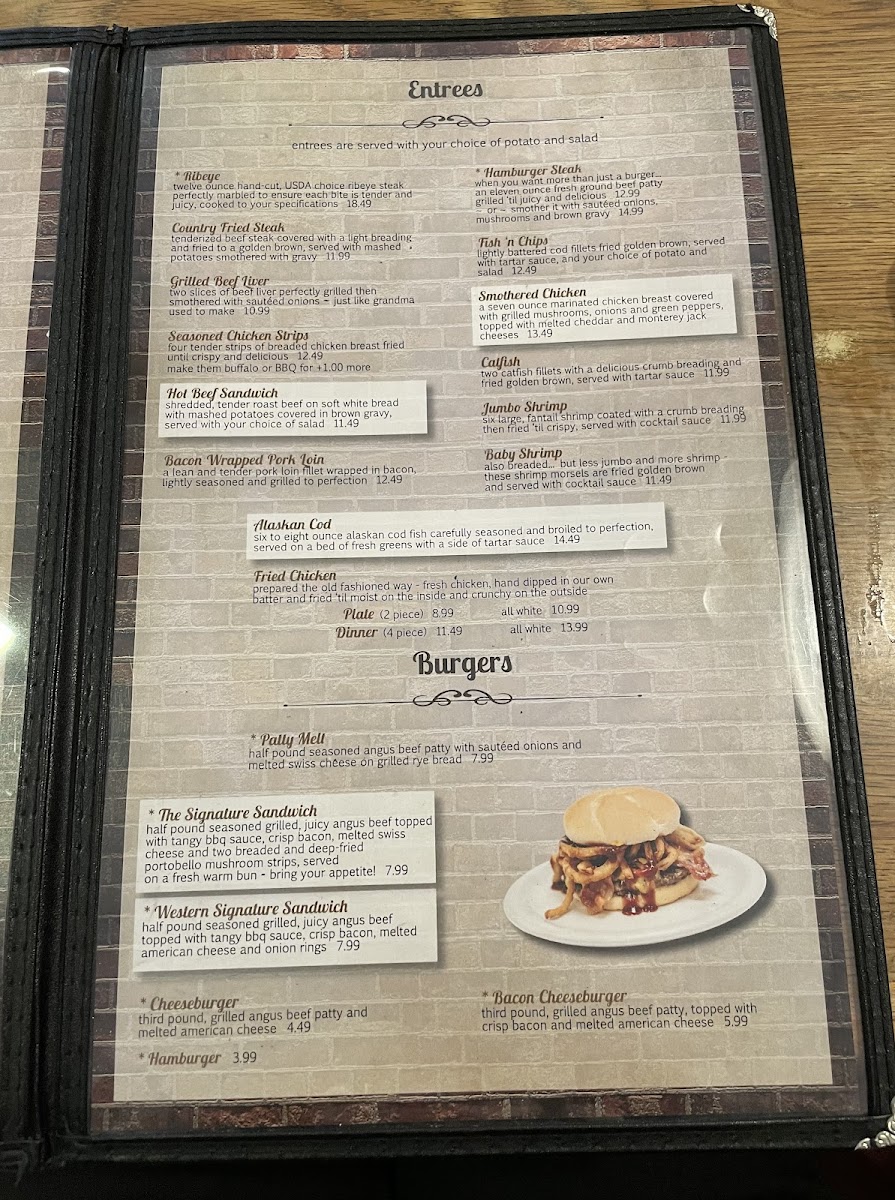 Entrees
entrees are served with your choice of potato and salad
* Ribeye
twelve ounce hand-cut, USDA choice ribeye steak
perfectly marbled to ensure each bite is tender and
juicy, cooked to your specifications 18.49
Country Fried Steak
tenderized beef steak covered with a light breading
and fried to a golden brown, served with mashed
potatoes smothered with gravy 11.99
Grilled Beef Liver
two slices of beef liver perfectly grilled then
smothered with sautéed onions – just like grandma
used to make 10.99
Seasoned Chicken Strips
four tender strips of breaded chicken breast fried
until crispy and delicious 12.49
make them buffalo or BBQ for +1.00 more
Hot Beef Sandwich
shredded, tender roast beef on soft white bread
with mashed potatoes covered in brown gravy,
served with your choice of salad 11.49
Bacon Wrapped Pork Loin
a lean and tender pork loin fillet wrapped in bacon,
lightly seasoned and grilled to perfection 12.49
* Hamburger Steak
when you want more than just a burger...
an eleven ounce fresh ground beef patty
grilled 'til juicy and delicious 12.99
– or – smother it with sautéed onions,
mushrooms and brown gravy 14.99
Fish 'n Chips
lightly battered cod fillets fried golden brown, served
with tartar sauce, and your choice of potato and
salad 12.49
Smothered Chicken
a seven ounce marinated chicken breast covered
with grilled mushrooms, onions and green peppers,
topped with melted cheddar and monterey jack
cheeses 13.49
Catfish
two catfish fillets with a delicious crumb breading and
fried golden brown, served with tartar sauce 11.99
Jumbo Shrimp
six large, fantail shrimp coated with a crumb breading
then fried 'til crispy, served with cocktail sauce 11.99
Baby Shrimp
also breaded... but less jumbo and more shrimp -
these shrimp morsels are fried golden brown
and served with cocktail sauce 11.49
Alaskan Cod
six to eight ounce alaskan cod fish carefully seasoned and broiled to perfection,
served on a bed of fresh greens with a side of tartar sauce 14.49
Fried Chicken
prepared the old fashioned way - fresh chicken, hand dipped in our own
batter and fried 'til moist on the inside and crunchy on the outside
Plate (2 piece) 8.99 all white 10.99
Dinner (4 piece) 11.49 all white 13.99
Burgers
* Patty Melt
half pound seasoned angus beef patty with sautéed onions and
melted swiss cheese on grilled rye bread 7.99
* The Signature Sandwich
half pound seasoned grilled, juicy angus beef topped
with tangy bbq sauce, crisp bacon, melted swiss
cheese and two breaded and deep-fried
portobello mushroom strips, served
on a fresh warm bun - bring your appetite! 7.99
* Western Signature Sandwich
half pound seasoned grilled, juicy angus beef
topped with tangy bbq sauce, crisp bacon, melted
american cheese and onion rings 7.99
* Cheeseburger
third pound, grilled angus beef patty and
melted american cheese 4.49
* Hamburger 3.99
* Bacon Cheeseburger
third pound, grilled angus beef patty, topped with
crisp bacon and melted american cheese 5.99